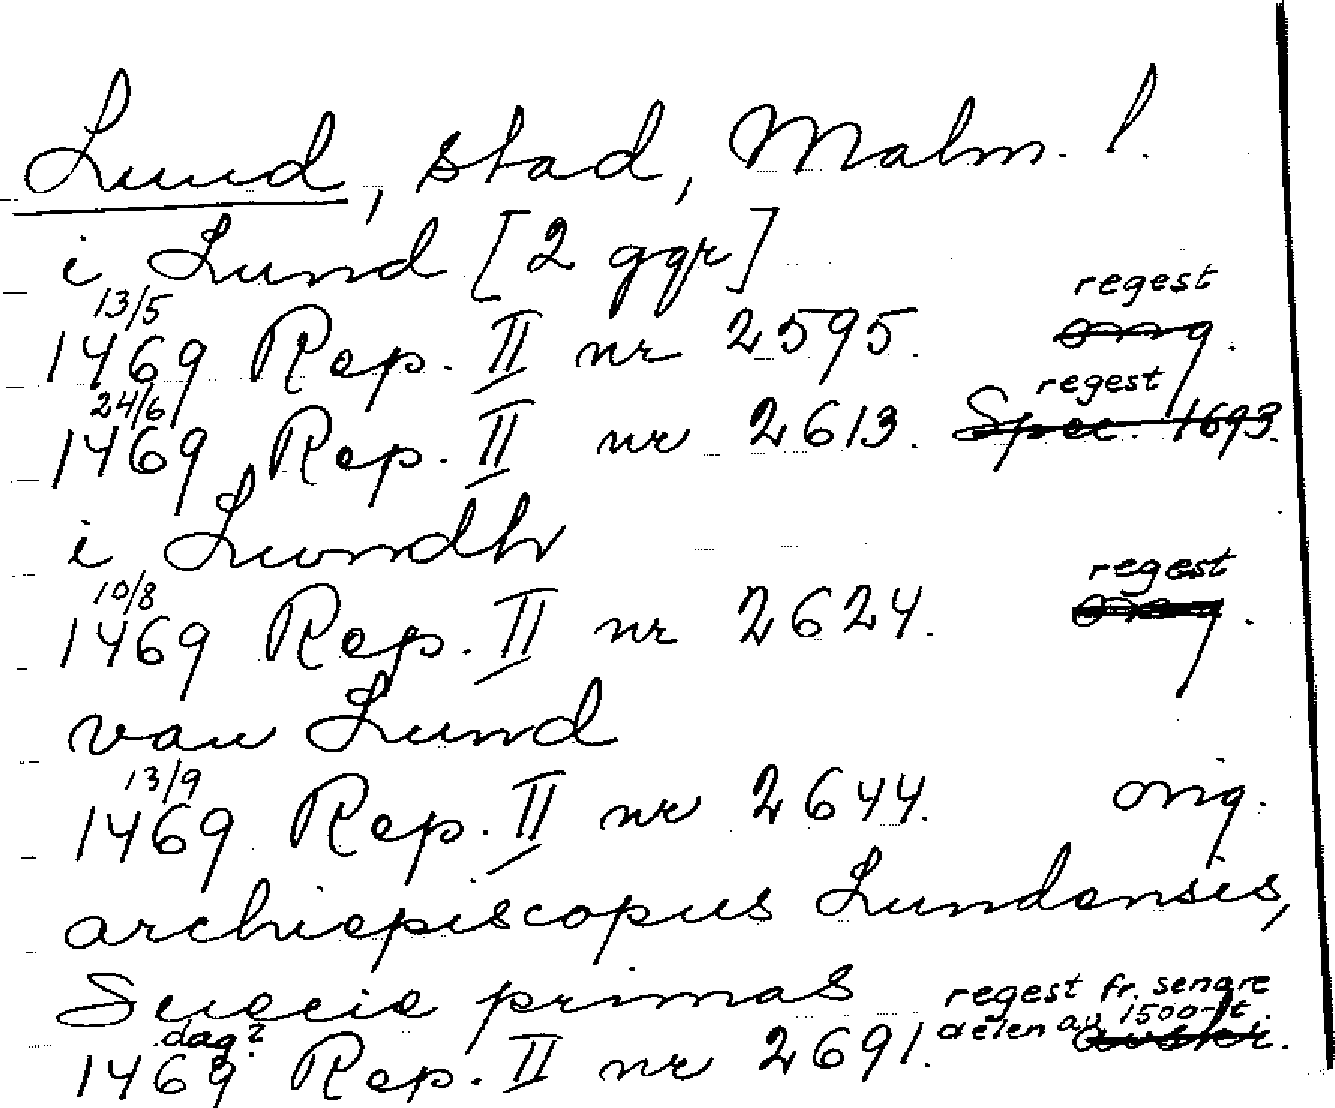 Lund, stad, Malm. l.
i Lund [2 ggr]
13/5 regest
1469 Rep. II nr 2595. orig.
24/6 regest
1469 Rep. II nr 2613. Spec. 1693.
i Lwndh
10/8 regest
1469 Rep. II nr 2624. orig.
van Lund
13/9
1469 Rep. II nr 2644. orig.
archiepiscopus Lundensis,
Suecie primas regest fr. senare
dag? delen av 1500-t.
1469 Rep. II nr 2691. avskr.